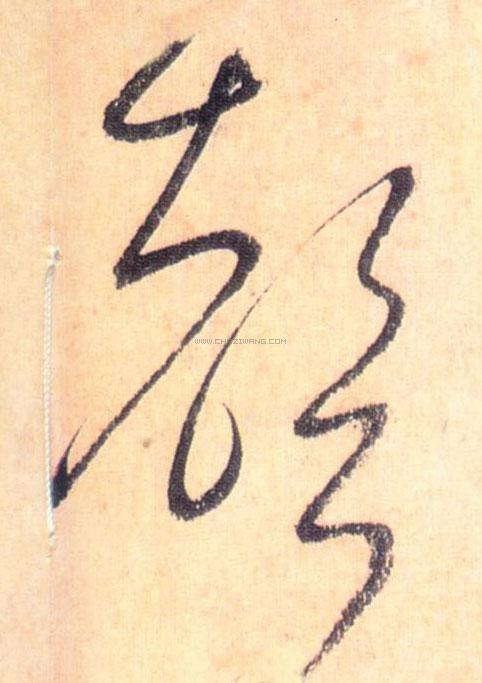 頹
WWW.CHAZIWANG.COM